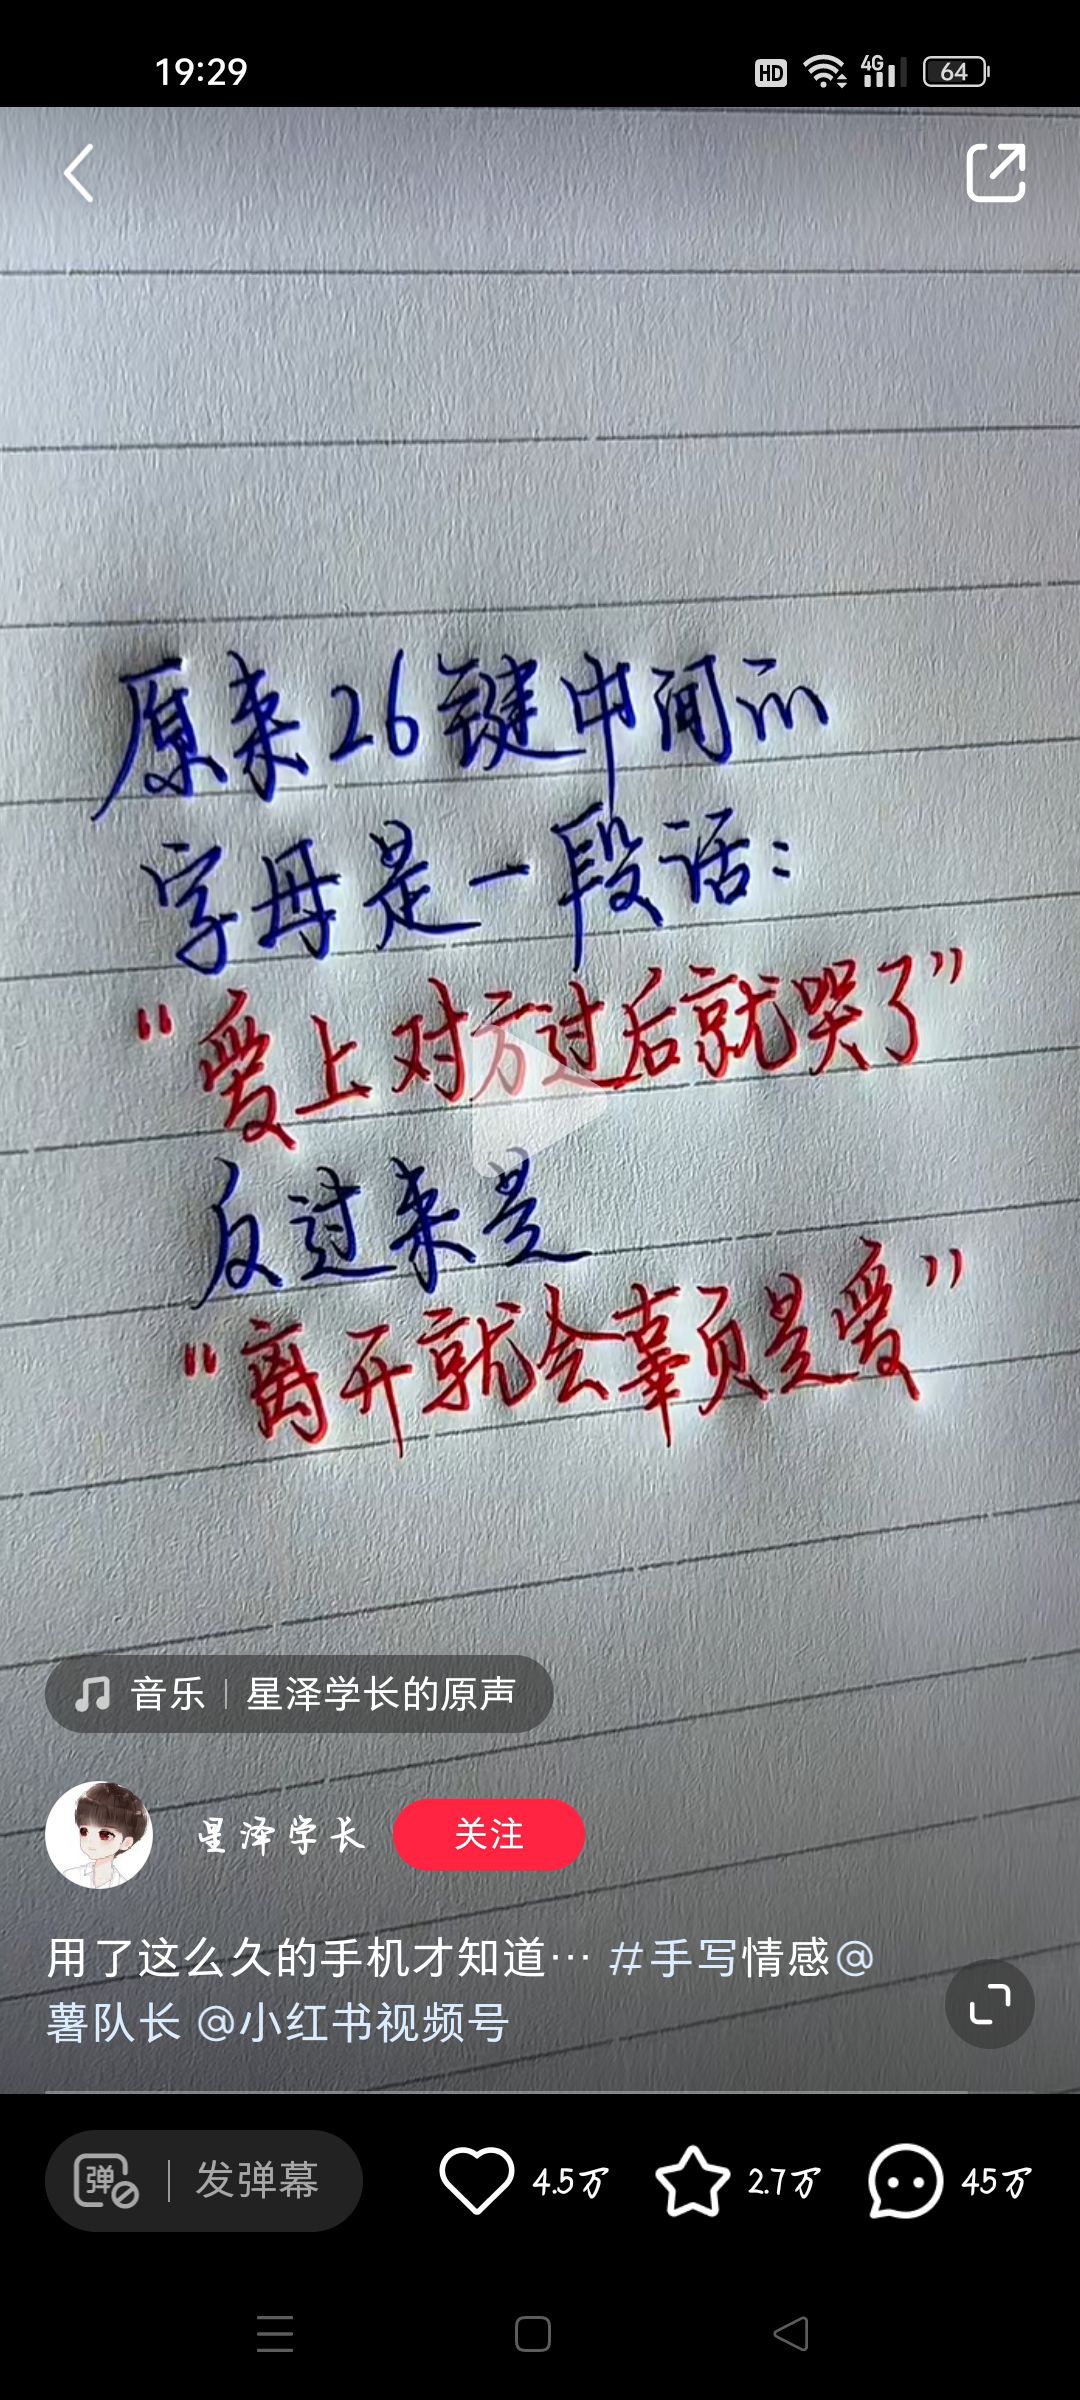 19:29
HD 4G 64
原来26键中间的
字母是一段话:
"爱上对方过后就哭了"
反过来是
"离开就会辜负是爱"
音乐 | 星泽学长的原声
星泽学长 关注
用了这么久的手机才知道… #手写情感@
薯队长 @小红书视频号
弹 | 发弹幕 4.5万 2.7万 45万